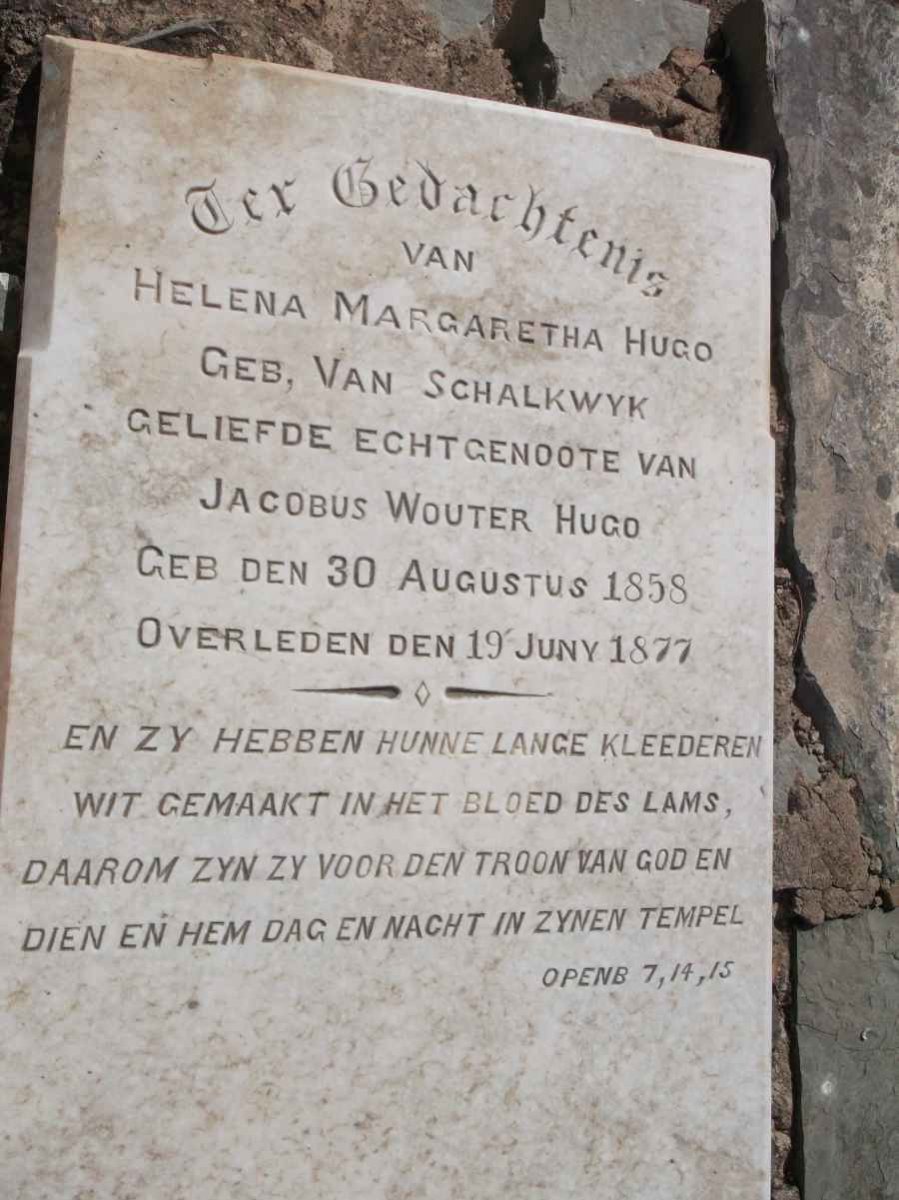 Ter Gedachtenis
VAN
HELENA MARGARETHA HUGO
GEB, VAN SCHALKWYK
GELIEFDE ECHTGENOOTE VAN
JACOBUS WOUTER HUGO
GEB DEN 30 AUGUSTUS 1858
OVERLEDEN DEN 19 JUNY 1877
EN ZY HEBBEN HUNNE LANGE KLEEDEREN
WIT GEMAAKT IN HET BLOED DES LAMS,
DAAROM ZYN ZY VOOR DEN TROON VAN GOD EN
DIEN EN HEM DAG EN NACHT IN ZYNEN TEMPEL
OPENB 7, 14, 15